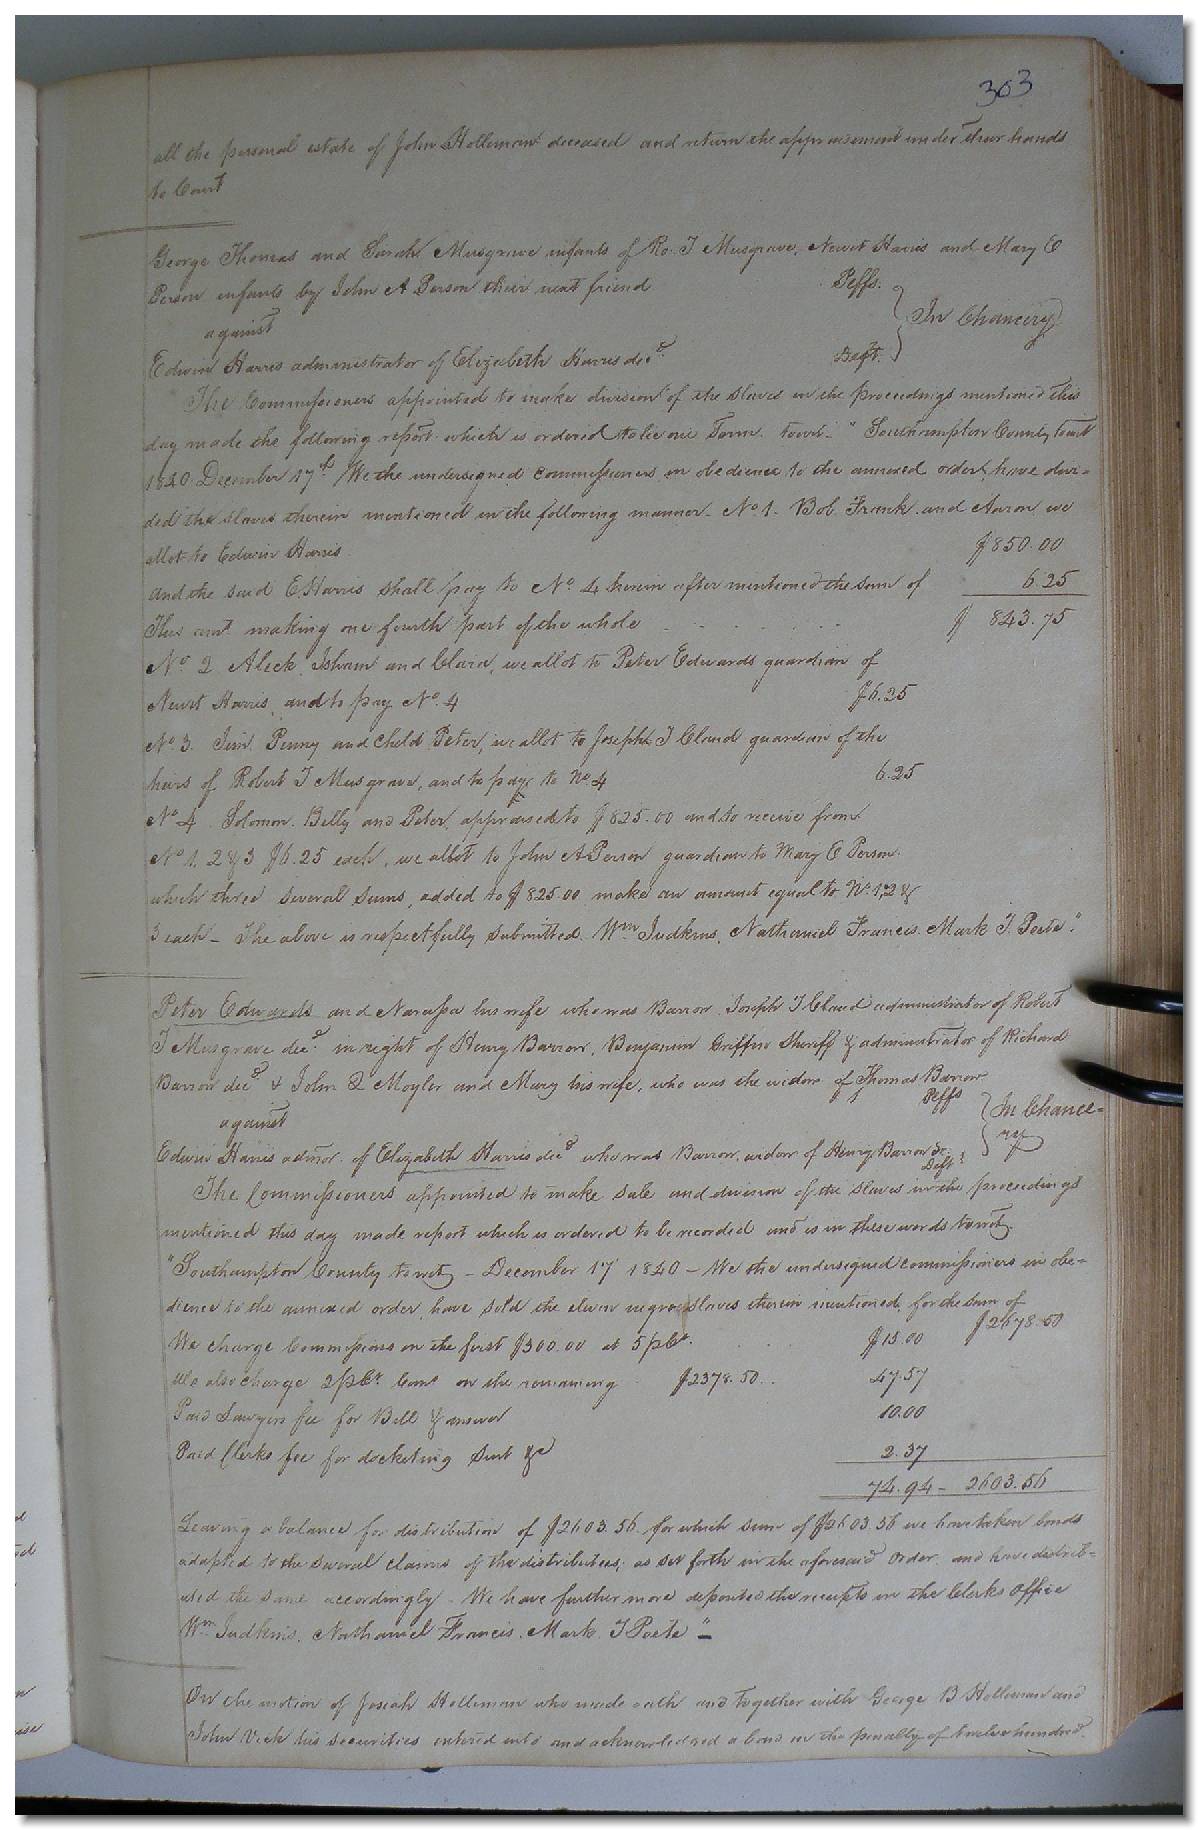 303
all the personal estate of John Holleman deceased and return the appraisement under their hands
to Court
George Thomas and Sarah Musgrave infants of Ro. T Musgrave, Newit Harris and Mary E
Person infants by John A Person their next friend Plffs.
against In Chancery
Edwin Harris administrator of Elizabeth Harris decd. Deft.
The Commissioners appointed to make division of the slaves in the proceedings mentioned this
day made the following report which is ordered to lie one Term. towit. " Southampton County towit
1840 December 17th We the undersigned commissioners in obedience to the annexed order, have divi-
ded the slaves therein mentioned in the following manner. No 1. Bob. Frank and Aaron we
allot to Edwin Harris $850.00
and the said E Harris shall pay to No. 4 herein after mentioned the sum of 6.25
This amt. making one fourth part of the whole $ 843.75
No 2 Aleck, Isham and , we allot to Peter Edwards guardian of
Newit Harris, and to pay No. 4 $6.25
No 3. Jim. Penny and child Peter, we allot to Joseph T Claud guardian of the
heirs of Robert T Musgrave, and to pay to No 4 6.25
No 4 Solomon. Billy and Peter, appraised to $825.00 and to receive from
No 1, 2 & 3 $6.25 each, we allot to John A Person guardian to Mary E Person.
which three several sums, added to $825.00 make an amount equal to No 1, 2 &
3 each - The above is respectfully submitted. Wm Judkins, Nathaniel Francis. Mark T. Poete".
Peter Edwards and Narcissa his wife who was Barrow. Joseph T Claud administrator of Robert
T Musgrave decd. in right of Henry Barrow, Benjamin Griffin Sheriff & administrator of Richard
Barrow decd & John Q Moyler and Mary his wife, who was the widow of Thomas Barrow
Plffs
against In Chance-
ry
Edwin Harris admor. of Elizabeth Harris decd who was Barrow, widow of Henry Barrow Sr. Deft.
The Commissioners appointed to make sale and division of the slaves in the proceedings
mentioned this day made report which is ordered to be recorded and is in these words towit;
"Southampton County towit - December 17 1840 - We the undersigned commissioners in obe-
dience to the annexed order, have sold the eleven negroe slaves therein mentioned, for the sum of $2678.50
We charge Commissions on the first $300.00 at 5 pCt. $15.00
We also charge 2 pCt. Coms on the remaining $2378.50.. 47.57
Paid Lawyers fee for Bill & answer 10.00
Paid Clerks fee for docketing suit &c 2.37
74.94 - 2603.56
Leaving a balance for distribution of $2603.56 for which sum of $2603.56 we have taken bonds
adapted to the several claims of the distributees; as set forth in the aforesaid order. and have distrib-
uted the same accordingly. We have further more deposited the receipts in the Clerks Office
Wm. Judkins. Nathaniel Francis. Mark. T Poete" -
On the motion of Josiah Holleman who made oath and together with George B Holleman and
John Vick his securities entered into and acknowledged a bond in the penalty of twelve hundred